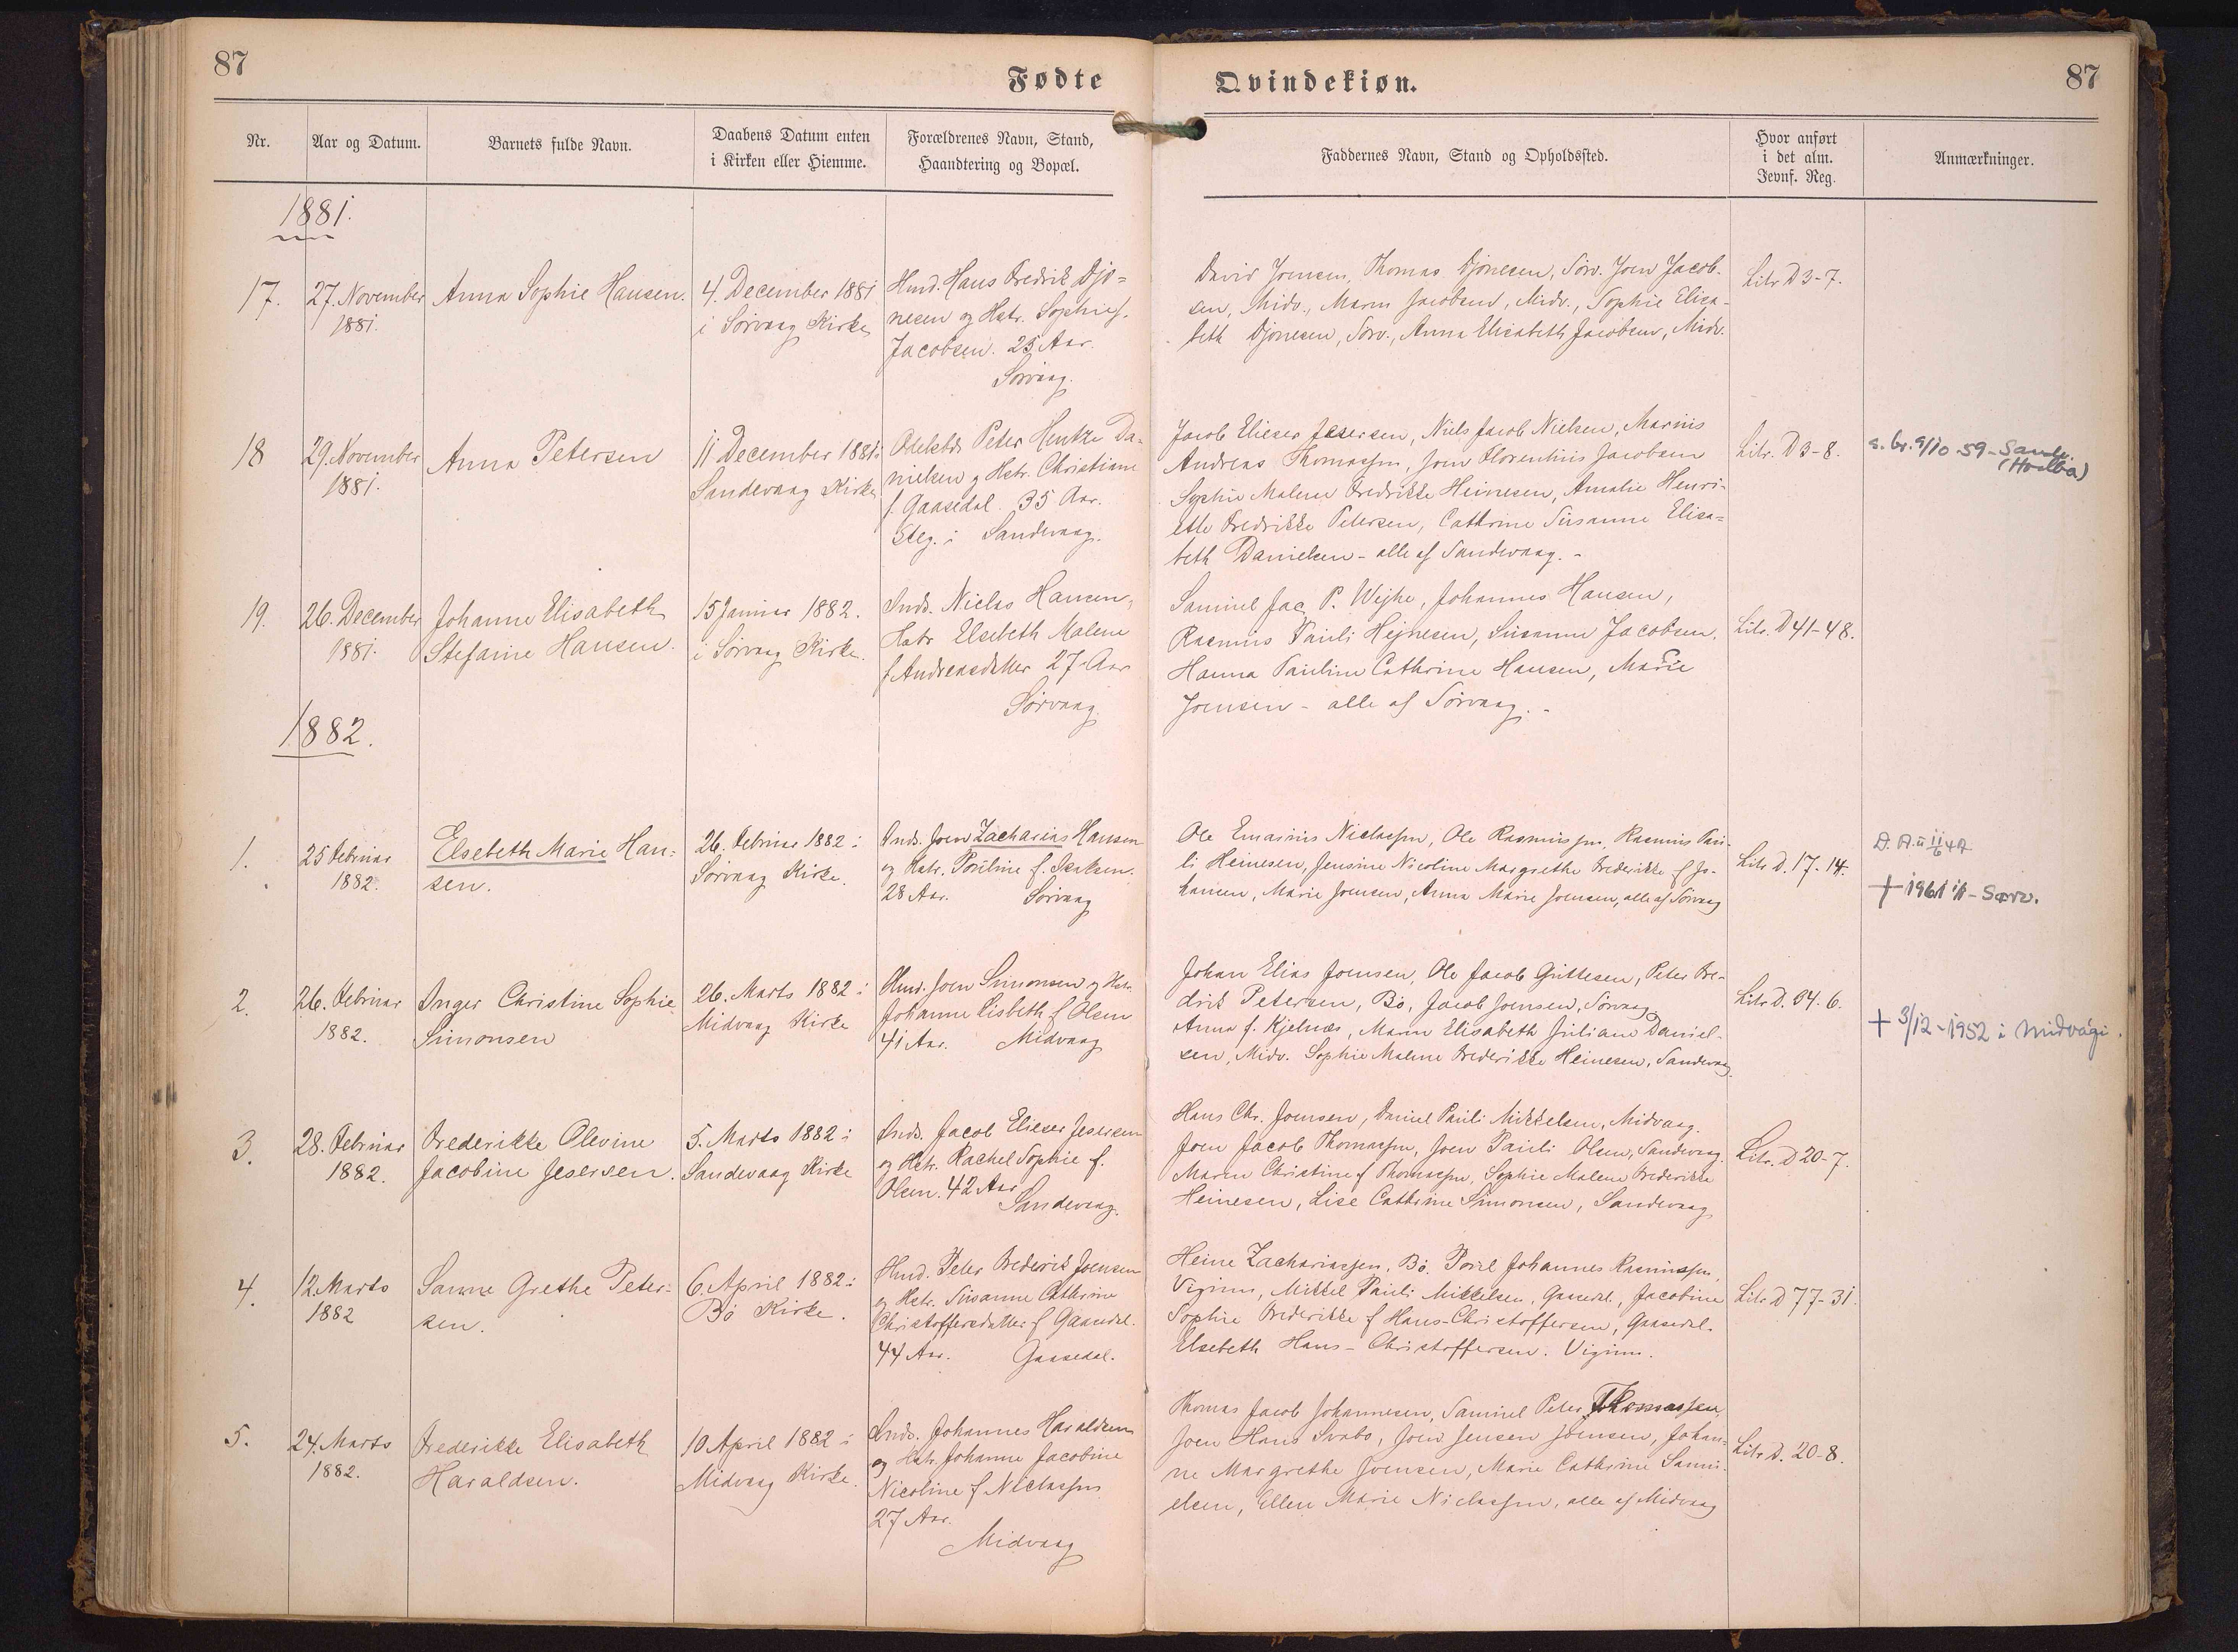 87
Fødte
Qvindekiøn.
87
Nr.
Aar og Datum.
Barnets fulde Navn.
Daabens Datum enten
i Kirken eller Hiemme.
Forældrenes Navn, Stand,
Haandtering og Bopæl.
Faddernes Navn, Stand og Opholdssted.
Hvor anført
i det alm.
Jevnf. Reg.
Anmærkninger.
1881.
17.
27. November
1881.
Anna Sophie Hansen.
4. December 1881
i Sørvaag Kirke
Hmd. Hans Fredrik Djo=
nesen og Hstr. Sophie f.
Jacobsen. 25 Aar.
Sørvaag.
David Joensen, Thomas Djonesen, Sørv. Joen Jacob-
sen, Midv., Maren Jacobsen, Midv., Sophie Elisa-
beth Djonesen, Sørv., Anna Elisabeth Jacobsen, Midv.
Litr. D 3-7.
18
29. November
1881.
Anna Petersen
11 December 1881 i
Sandevaag Kirke
Peter Hentze Da=
nielsen og Hstr. Christiane
f. Gaasedal. 35 Aar.
i Sandevaag.
Jacob Elieser Jesersen, Niels Jacob Nielsen, Marius
Andreas Thomassen, Joen Florentius Jacobsen
Sophie Malene Fredrikke Heinesen, Amalie Henri-
ette Fredrikke Petersen, Cathrine Susanne Elisa=
beth Danielsen - alle af Sandevaag. -
Litr. D 3-8.
s. br. 9/10-59-Sandv.
19.
26. December
1881.
Johanne Elisabeth
Stefanie Hansen.
15 Januar 1882.
i Sørvaag Kirke.
Indr. Niclas Hansen,
Hstr Elsebeth Malene
f Andreasdatter 27 Aar
Sørvaag.
Samuel Jac. P. Wejhe, Johannes Hansen,
Rasmus Pauli Hejnesen, Susanne Jacobsen,
Hanna Pauline Cathrine Hansen, Marie
Joensen - alle af Sørvaag. -
Litr. D 41-48.
1882.
1.
25 Februar
1882.
Elsebeth Marie Han=
sen.
26. Februar 1882 i
Sørvaag Kirke.
Indr. Joen Zacharias Hansen
og Hstr. Pouline f. Isaksen.
28 Aar. Sørvaag
Ole Emarius Niclassen, Ole Rasmussen, Rasmus Pau-
li Heinesen, Jensine Nicoline Margrethe Frederikke f Jo-
hansen, Marie Joensen, Anna Marie Joensen, alle af Sørvaag
Litr D. 17-14.
D. A. u 11/6 47
+ 1961 - Sørv.
2.
26. Februar
1882.
Inger Christine Sophie
Simonsen
26. Marts 1882 i
Midvaag Kirke
Hmd. Joen Simonsen og Hstr.
Johanne Lisbeth f Olsen
41 Aar. Midvaag
Johan Elias Joensen, Ole Jacob Guttesen, Peter Fre-
drik Petersen, Bø, Jacob Joensen, Sørvaag
Anna f. Kjelnæs, Maren Elisabeth Juliane Daniel-
sen, Midv. Sophie Malene Frederikke Heinesen, Sandevaag.
Litr D. 84. 6.
+ 3/12-1952 i Miðvági.
3.
28. Februar
1882.
Frederikke Olevine
Jacobine Jesersen.
5. Marts 1882 i
Sandevaag Kirke
Indr. Jacob Elieser Jesersen
og Hstr. Rachel Sophie f.
Olsen. 42 Aar
Sandevaag.
Hans Chr. Joensen, Daniel Pauli Mikkelsen, Midvaag.
Joen Jacob Thomassen, Joen Pauli Olsen, Sandevaag.
Maren Christine f Thomassen, Sophie Malene Frederikke
Heinesen, Lise Cathrine Simonsen, Sandevaag
Litr. D 20-7.
4.
12. Marts
1882
Sanne Grethe Peter=
sen.
6. April 1882 i
Bø Kirke.
Hmd. Peter Frederik Joensen
og Hstr. Susanne Cathrine
Christoffersdatter f Gaasedal.
44 Aar. Gaasedal.
Heine Zachariassen, Bø. Poul Johannes Rasmussen,
Viginn, Mikkel Pauli Mikkelsen, Gaasedal, Jacobine
Sophie Frederikke f Hans-Christoffersen, Gaasedal.
Elsebeth Hans-Christoffersen. Viginn.
Litr. D 77-31.
5.
24. Marts
1882.
Frederikke Elisabeth
Haraldsen.
10 April 1882 i
Midvaag Kirke.
Indr. Johannes Haraldsen
og Hstr. Johanne Jacobine
Nicoline f Niclassen
27 Aar.
Midvaag
Thomas Jacob Johannesen, Samuel Peter Thomassen,
Joen Hans Svabo, Joen Jensen Joensen, Johan=
ne Margrethe Joensen, Marie Cathrine Samu-
elsen, Ellen Marie Niclassen, alle af Midvaag
Litr D. 20-8.